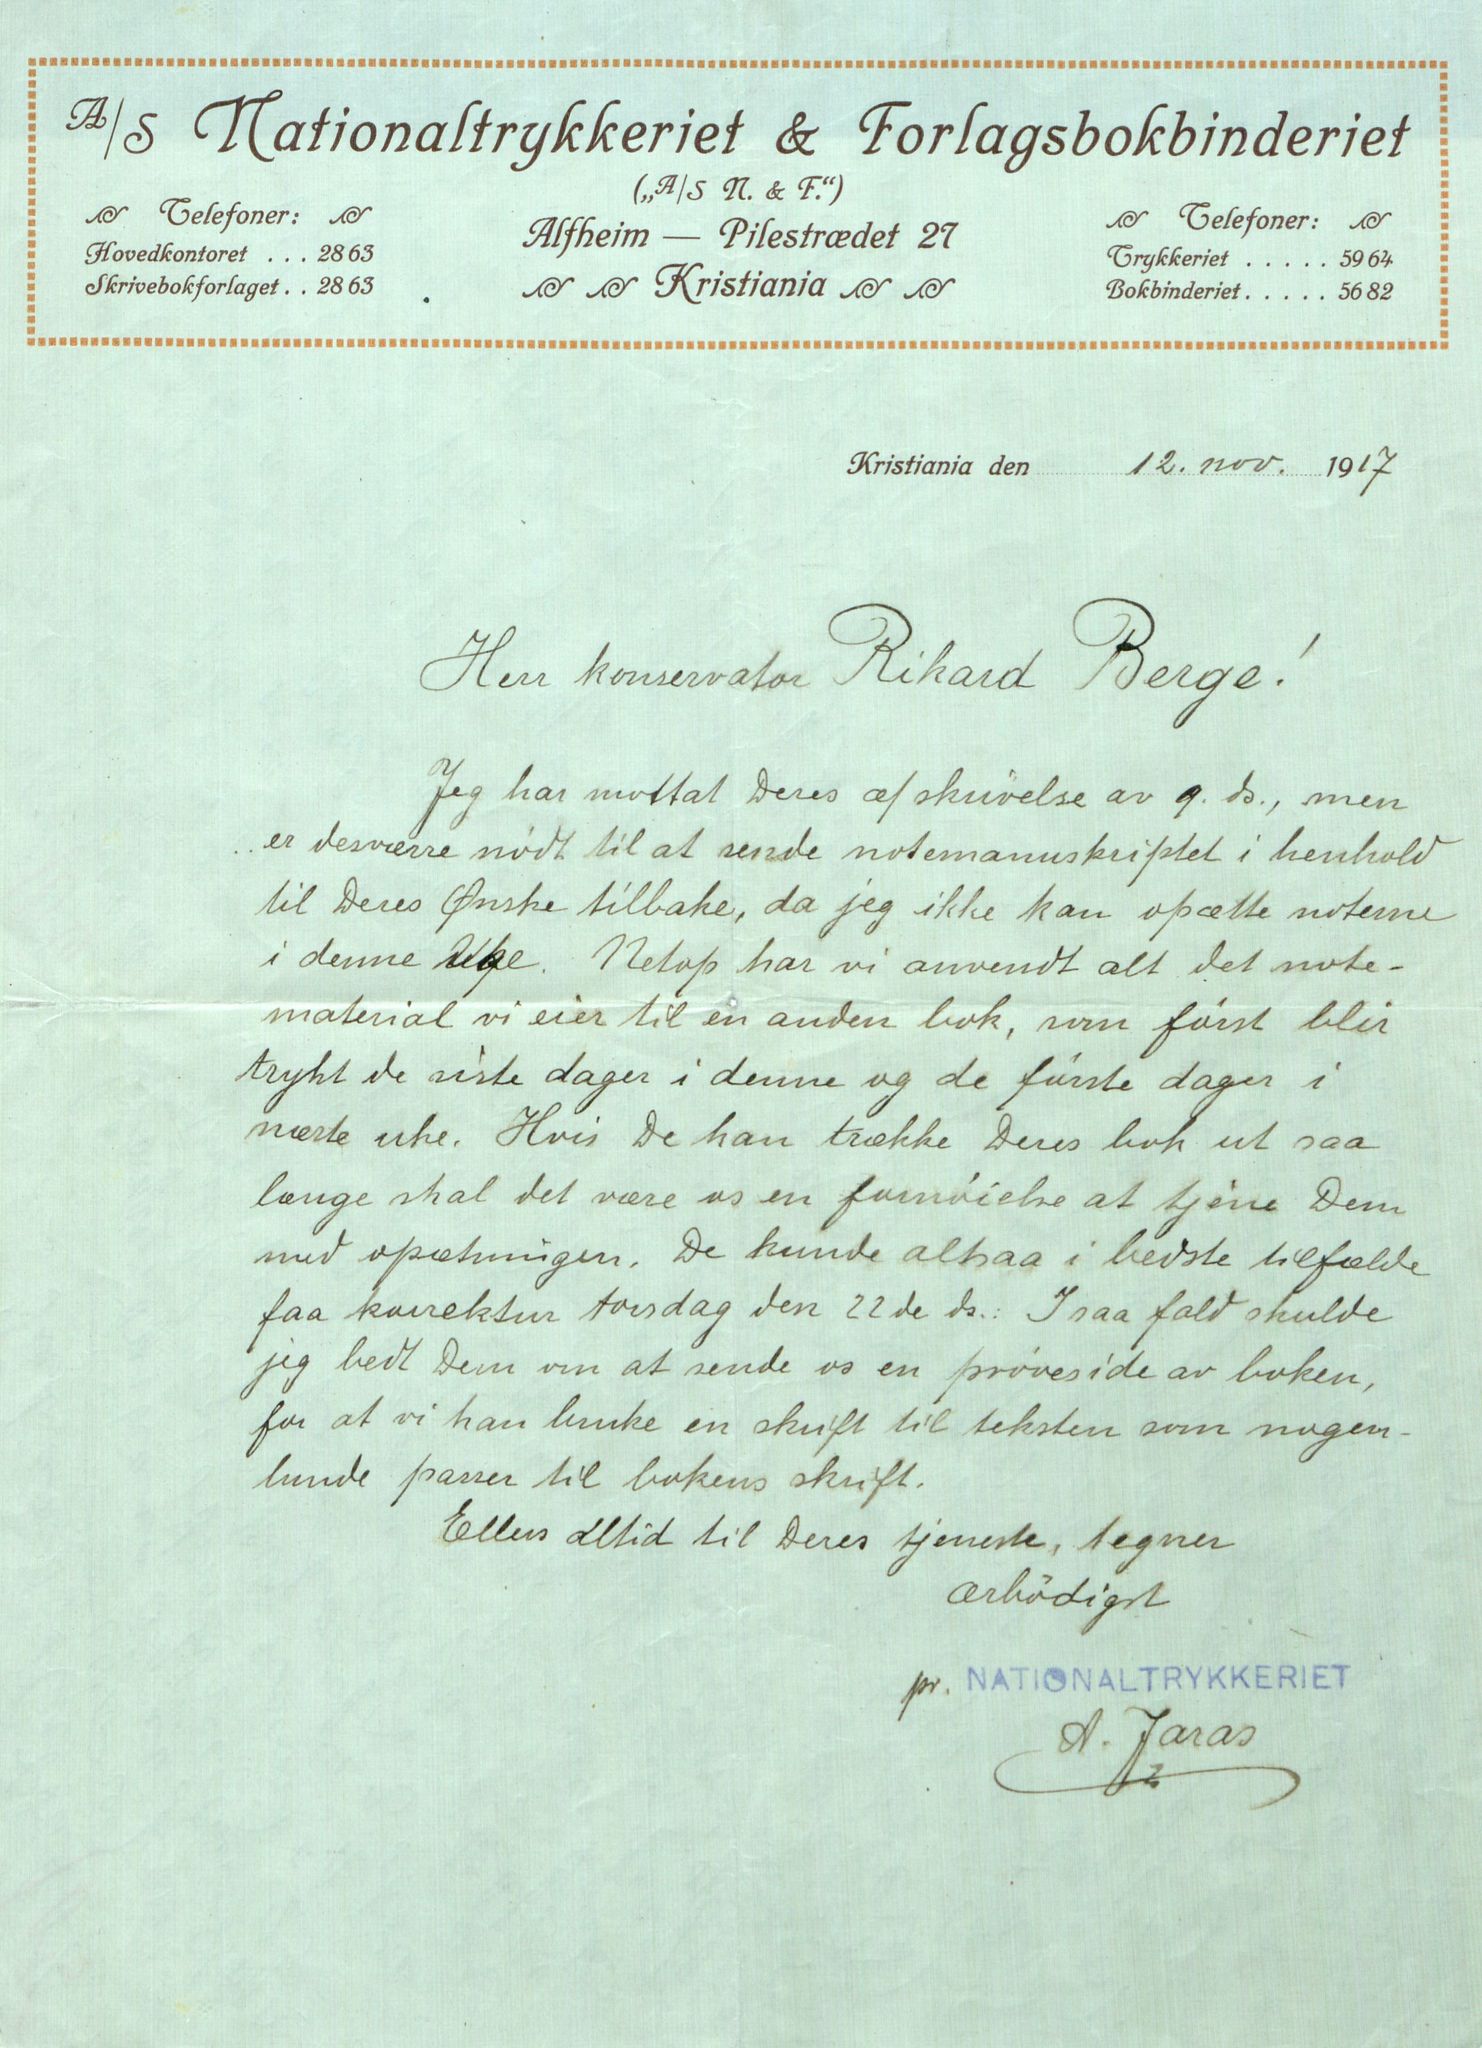 A/S Nationaltrykkeriet & Forlagsbokbinderiet
(„A/S N. & F.“)
Telefoner:
Hovedkontoret . . . 2863
Skrivebokforlaget . . 2863
Alfheim — Pilestrædet 27
Kristiania
Telefoner:
Trykkeriet . . . . . 5964
Bokbinderiet . . . . . 5682
Kristiania den 12. nov. 1917
Herr konservator Rikard Berge!
Jeg har mottat Deres æf skrivelse av 9. ds., men
er desværre nödt til at sende notemanuskriptet i henhold
til Deres Ønske tilbake, da jeg ikke kan opsætte noterne
i denne uke. Netop har vi anvendt alt det note-
material vi eier til en anden bok, som först blir
trykt de siste dager i denne og de förste dager i
næste uke. Hvis De kan trække Deres bok ut saa
længe skal det være os en fornöielse at tjene Dem
med opsætningen. De kunde altsaa i bedste tilfælde
faa korrektur torsdag den 22de ds.: I saa fald skulde
jeg bedt Dem om at sende os en pröveside av boken,
for at vi kan bruke en skrift til teksten som nogen-
lunde passer til bokens skrift.
Ellers altid til Deres tjeneste, tegner
ærbödigst
pr. NATIONALTRYKKERIET
A. Jaras